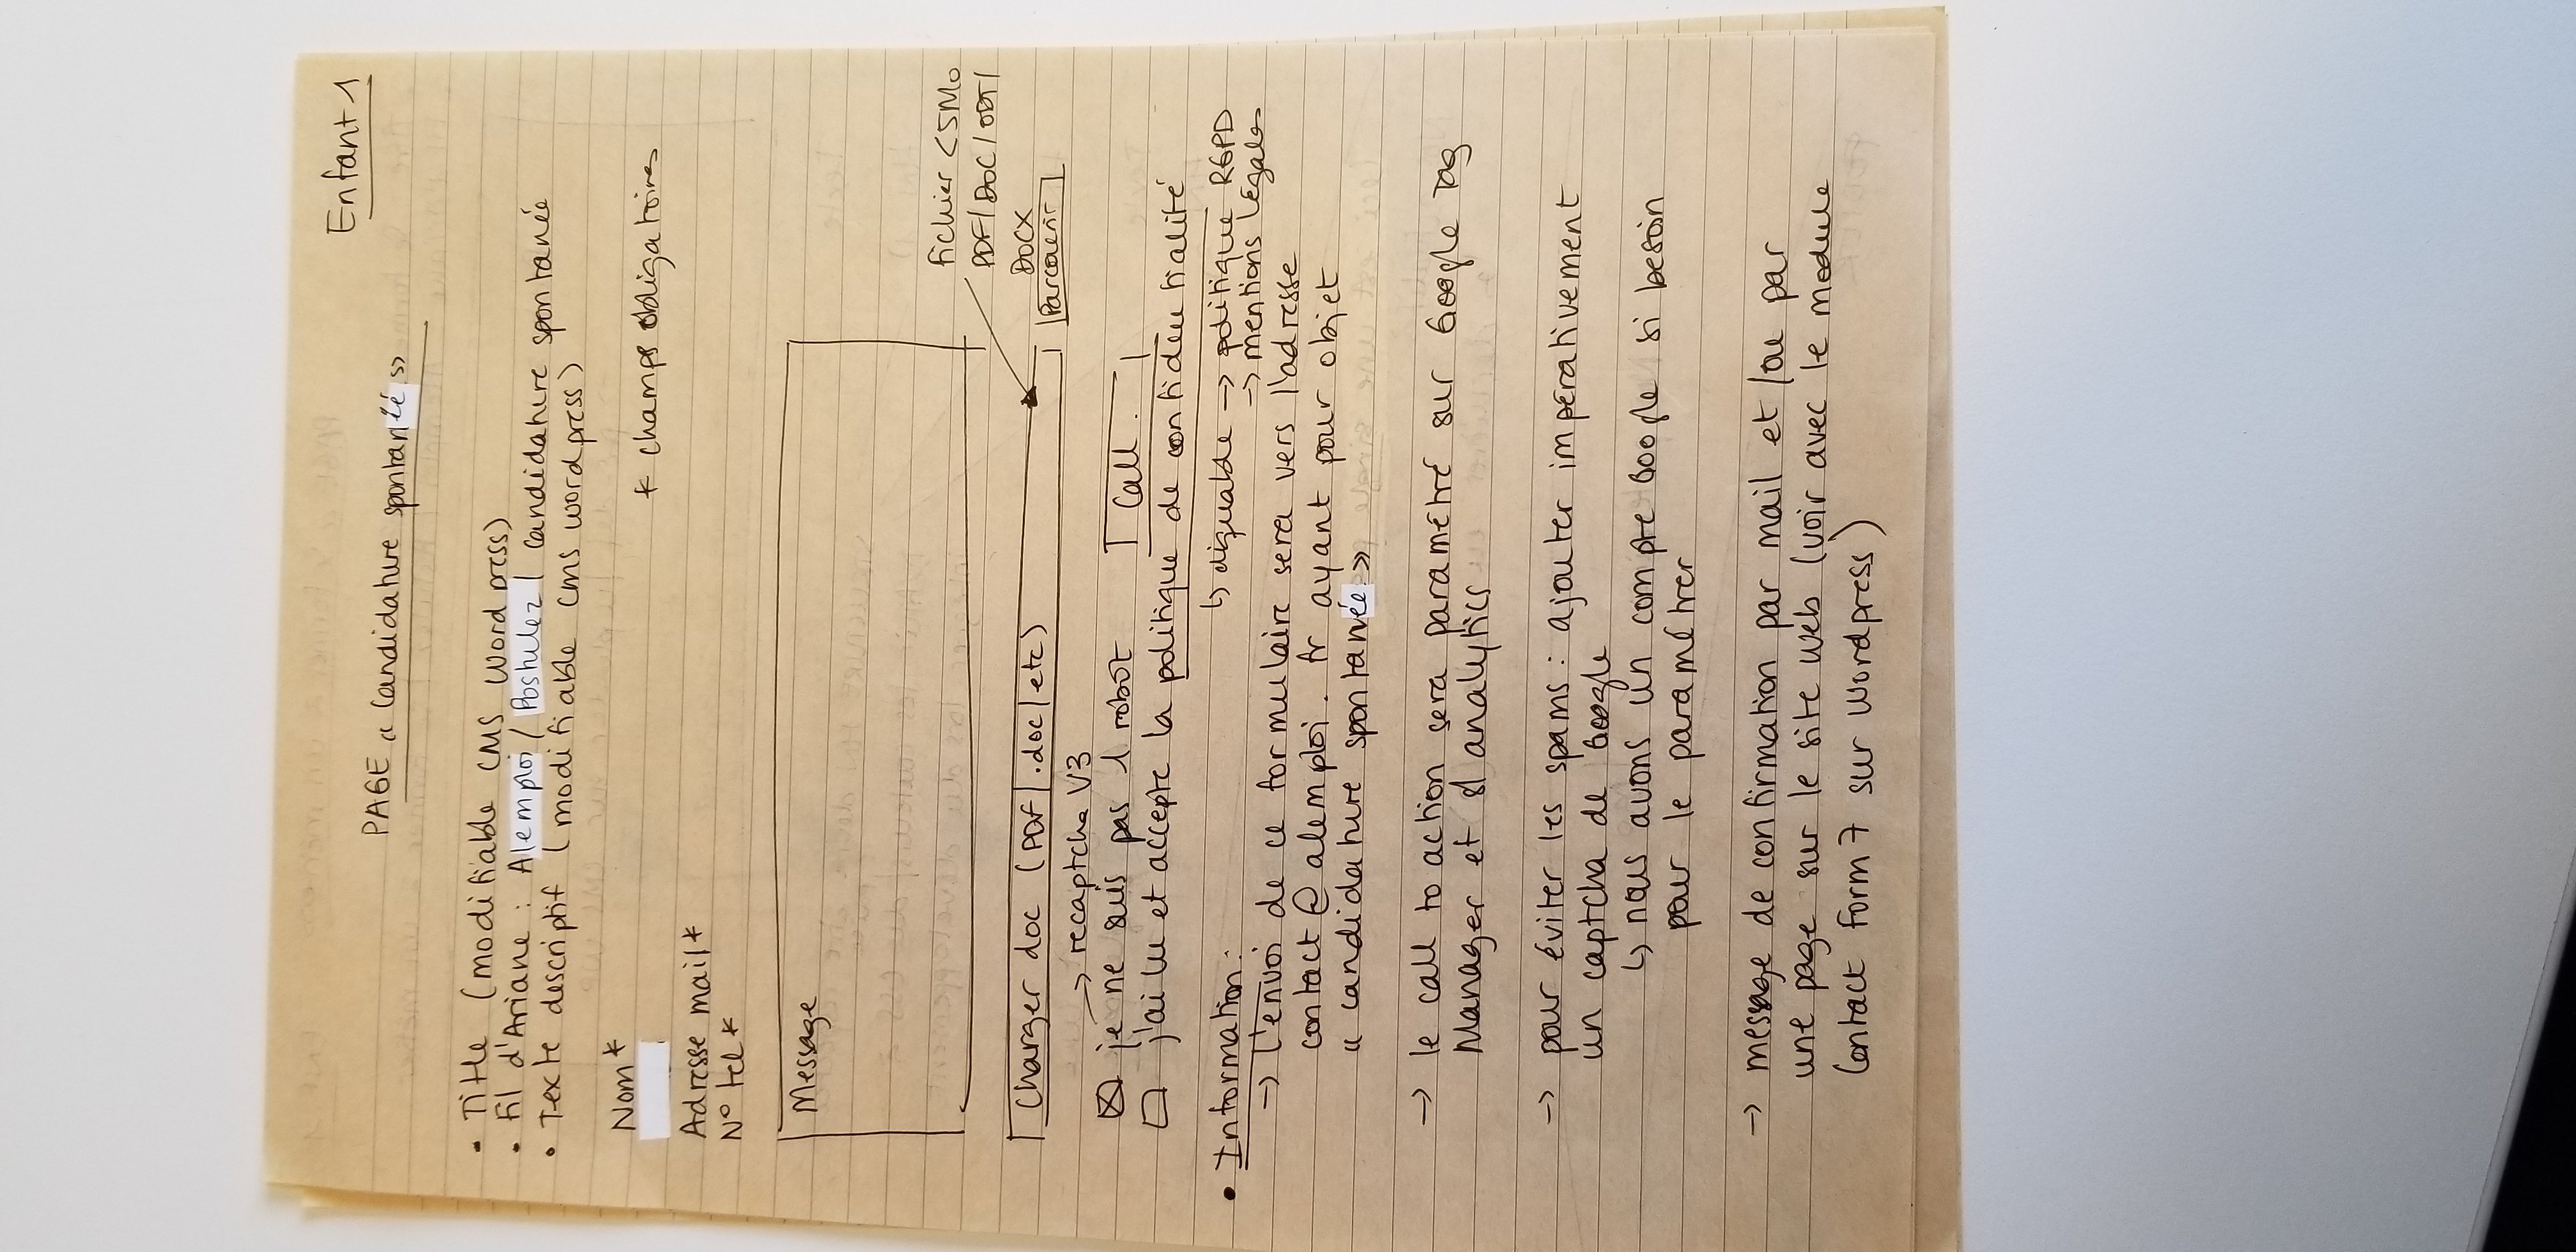 Enfant 1
PAGE « Candidature spontanée »
• Title (modifiable CMS Wordpress)
• Fil d'Ariane : Alemploi / Postulez / Candidature spontanée
• Texte descriptif (modifiable CMS wordpress)
Nom *
* champs obligatoires
Adresse mail *
N° tel *
Message
Fichier < 5Mo
PDF / DOC / ODT /
DOCX
Charger doc (PDF / .doc / etc)
Parcourir
→ recaptcha V3
je ne suis pas 1 robot
Call.
j'ai lu et accepte la politique de confidentialité
↳ cliquable → politique RGPD
→ mentions légales
• Information :
→ L'envoi de ce formulaire sera vers l'adresse
contact@alemploi.fr ayant pour objet
« candidature spontanée »
→ le call to action sera paramétré sur Google Tag
Manager et sl analytics
→ pour éviter les spams : ajouter impérativement
un captcha de Google
↳ nous avons un compte Google si besoin
pour le paramétrer
→ message de confirmation par mail et / ou par
une page sur le site web (voir avec le module
Contact Form 7 sur Wordpress)